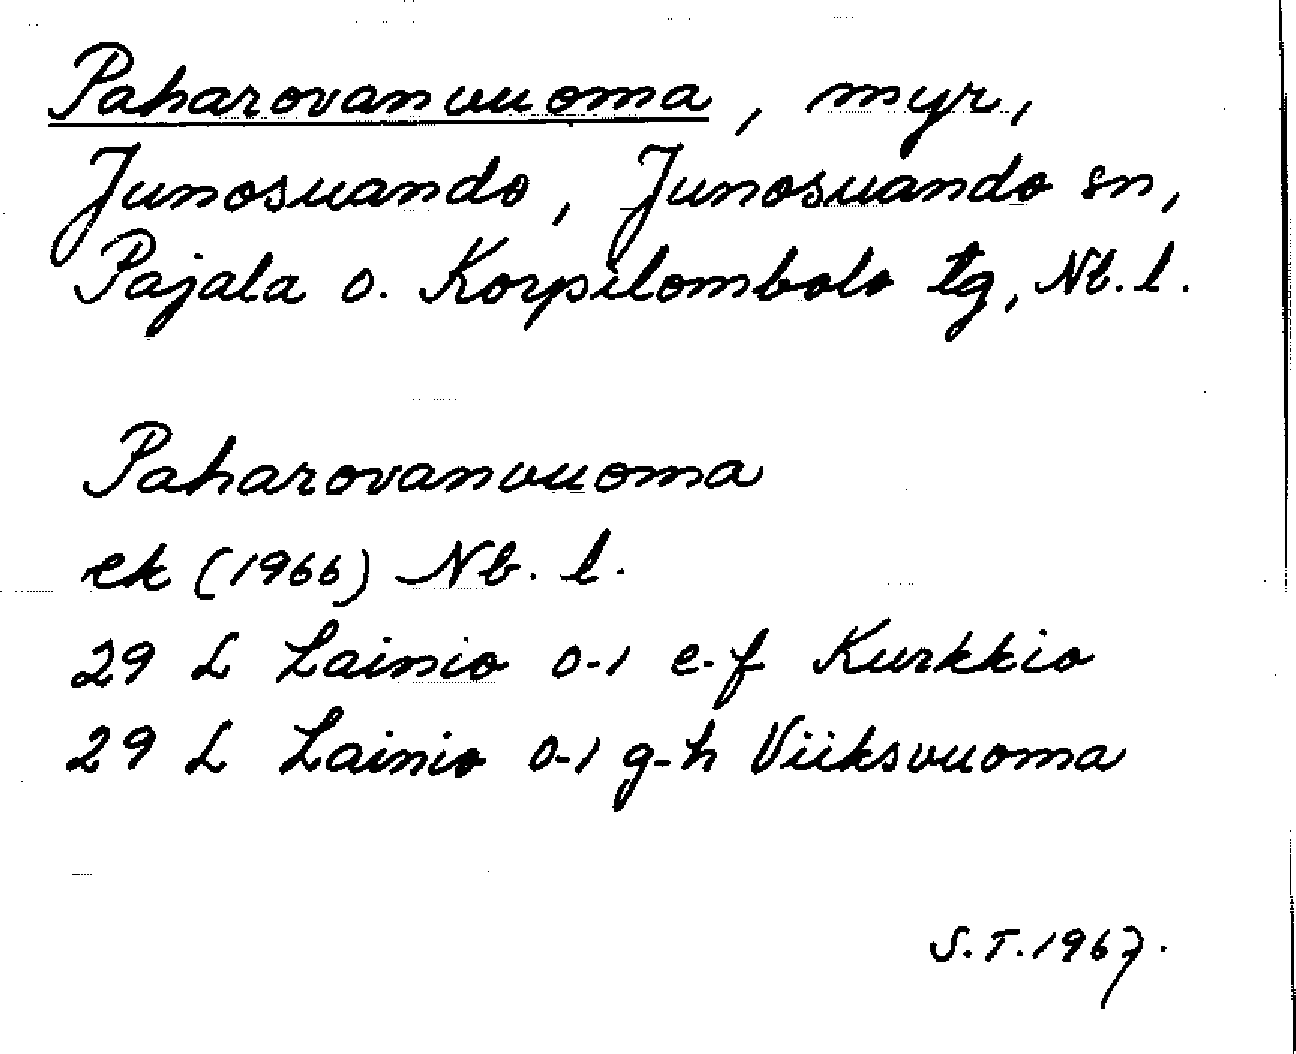 Paharovanvuoma, myr,
Junosuando, Junosuando sn,
Pajala o. Korpilombolo tg, Nb. l.
Paharovanvuoma
ek (1966) Nb. l.
29 L Lainio 0-1 e-f Kurkkio
29 L Lainio 0-1 g-h Viiksvuoma
S.T. 1967.